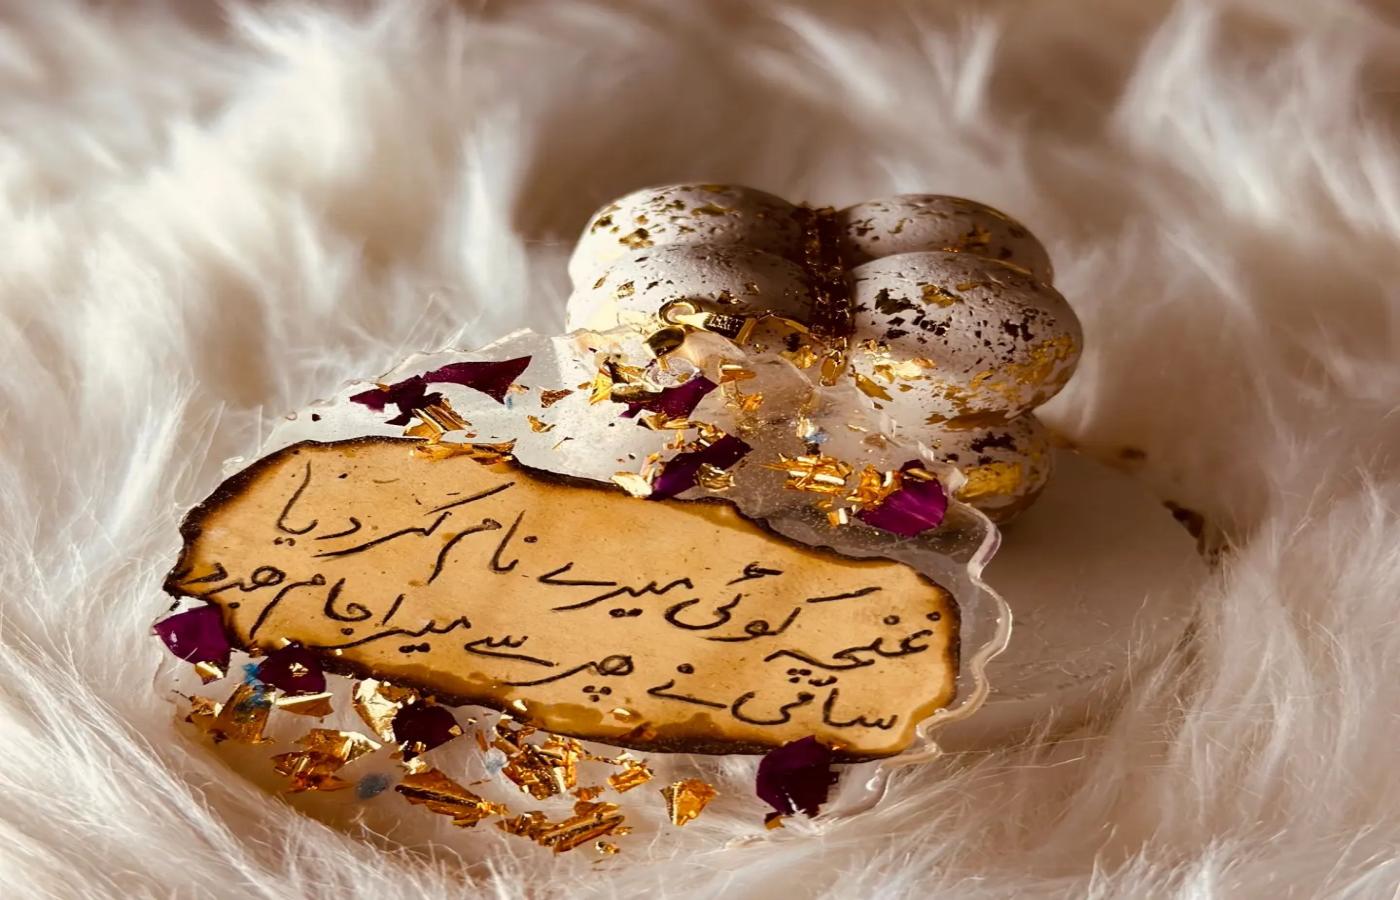 غنچہ کوئی میرے نام کر دیا
ساقی نے پھر سے میرا جام بھر د